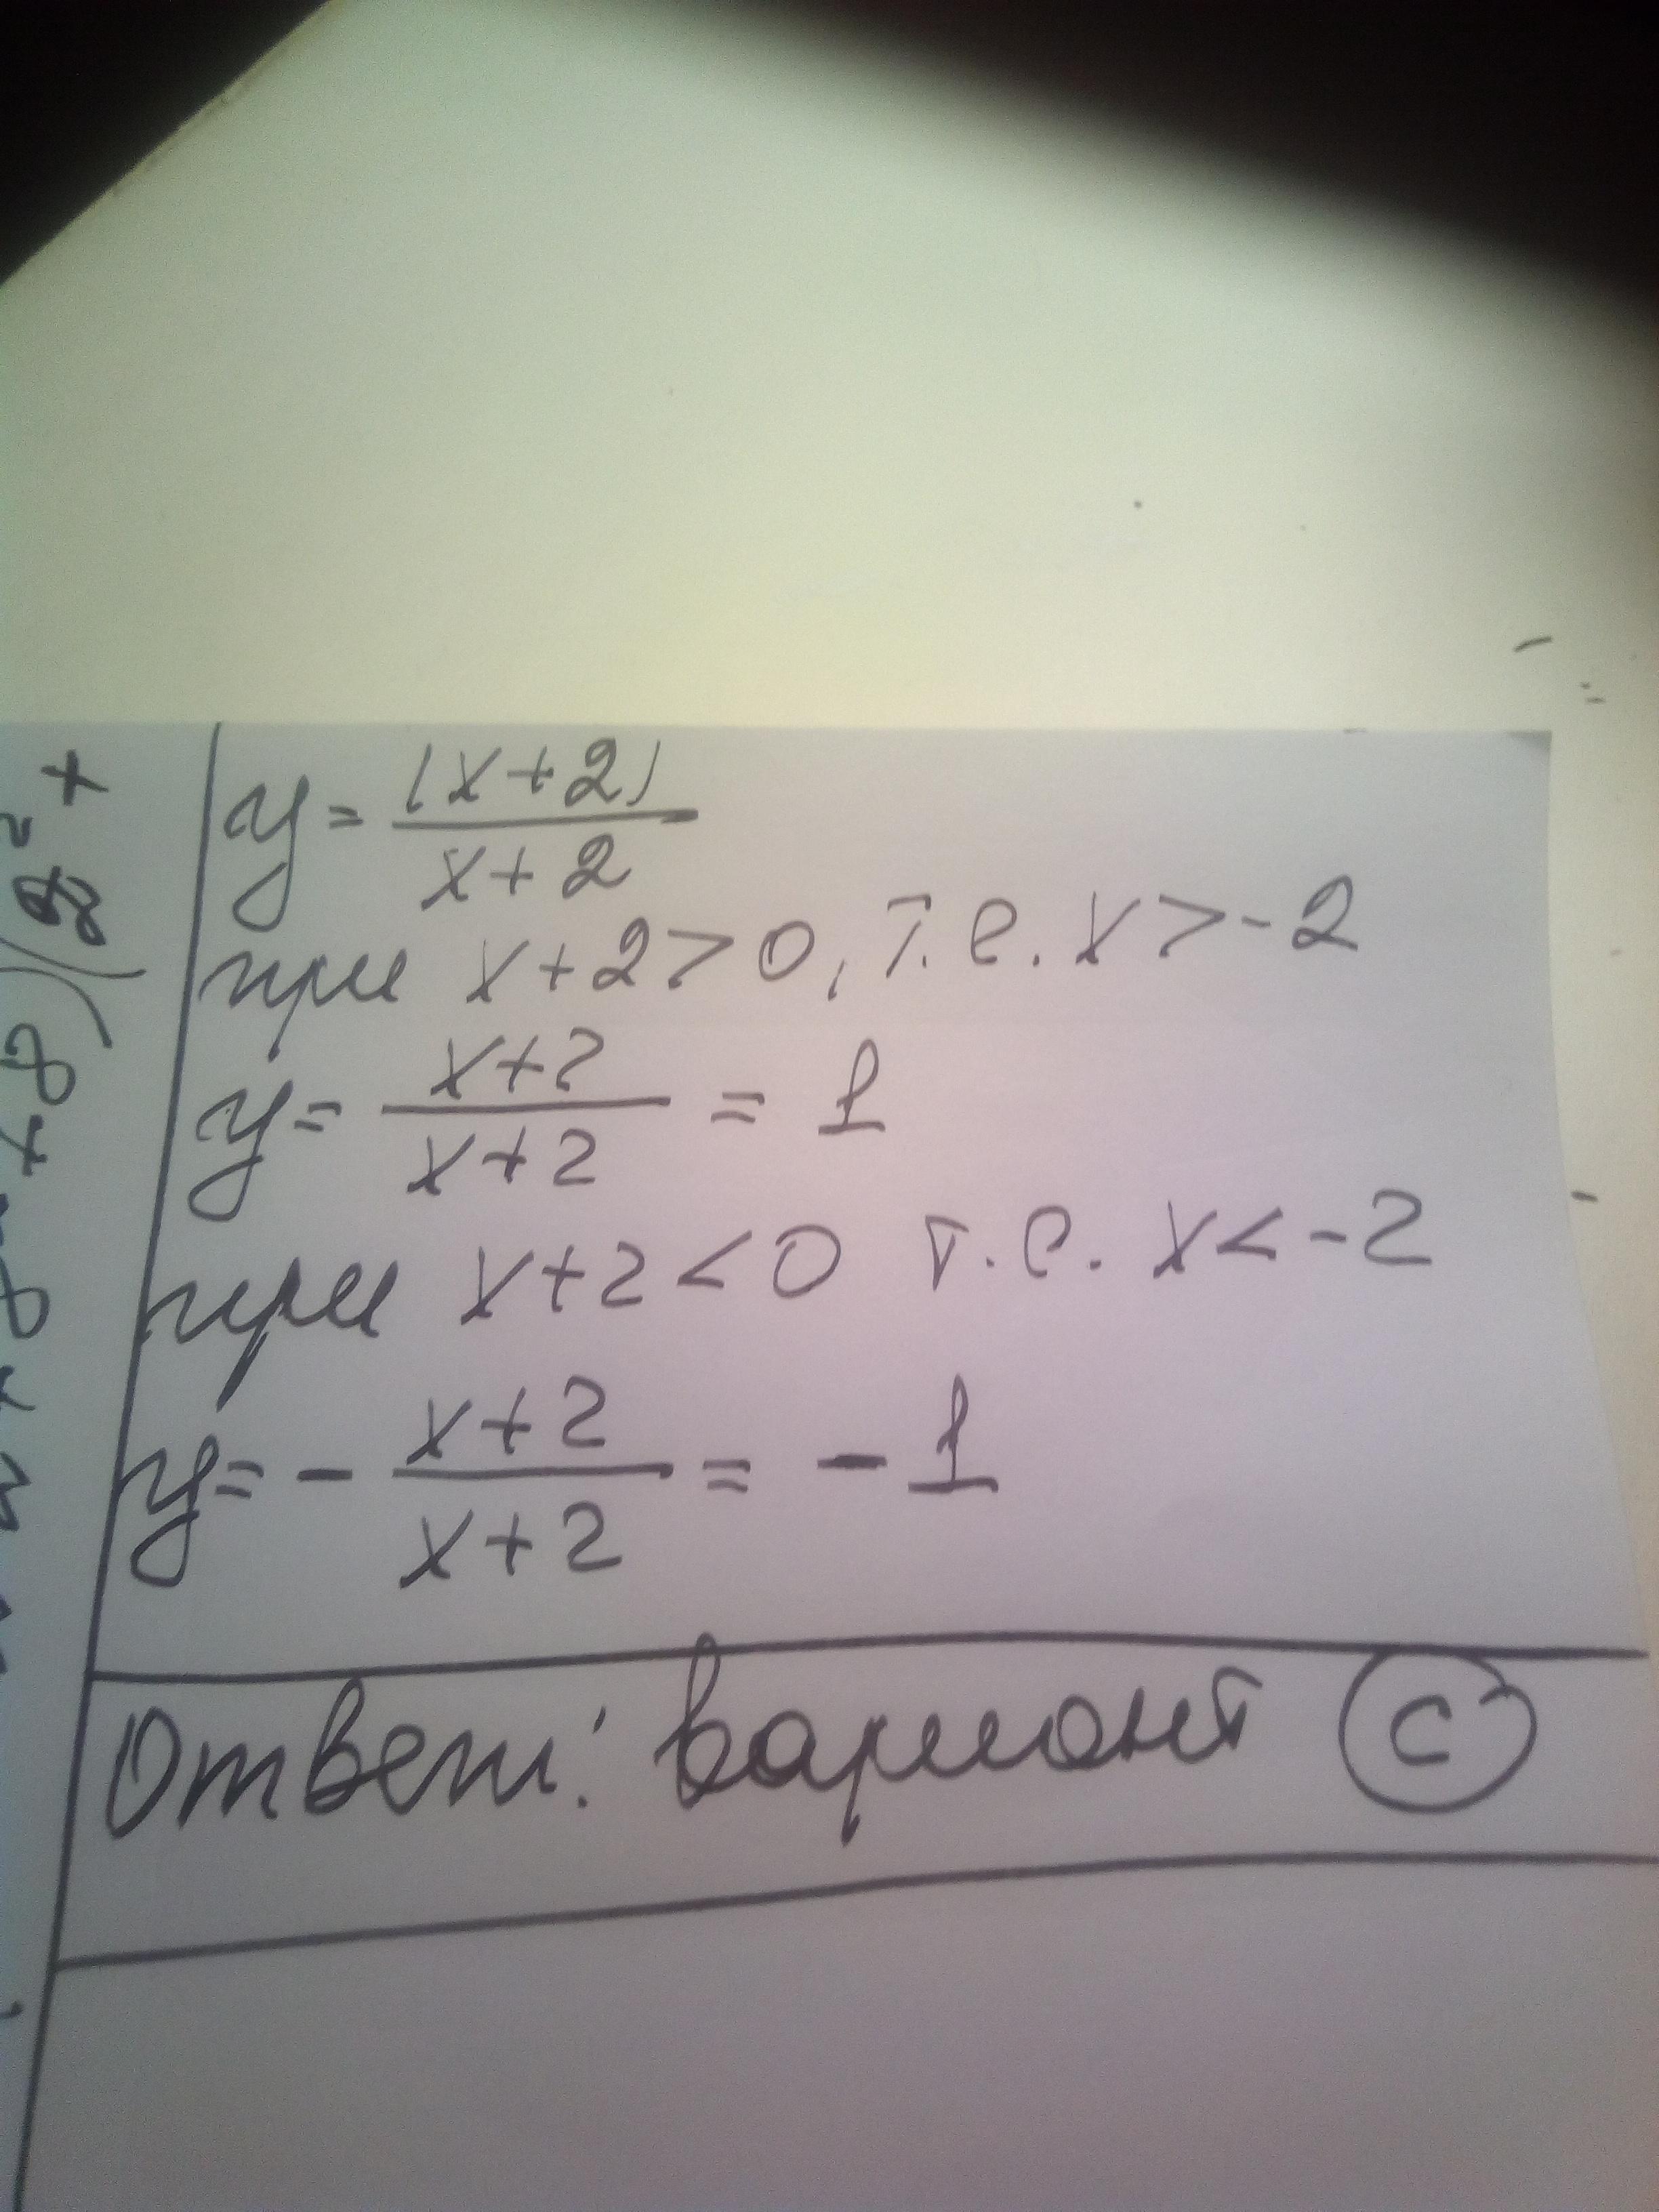 y = |x+2| / x+2
при x+2>0, т.е. x>-2
y = x+2 / x+2 = 1
при x+2<0 т.е. x<-2
y = - x+2 / x+2 = -1
Ответ: вариант C